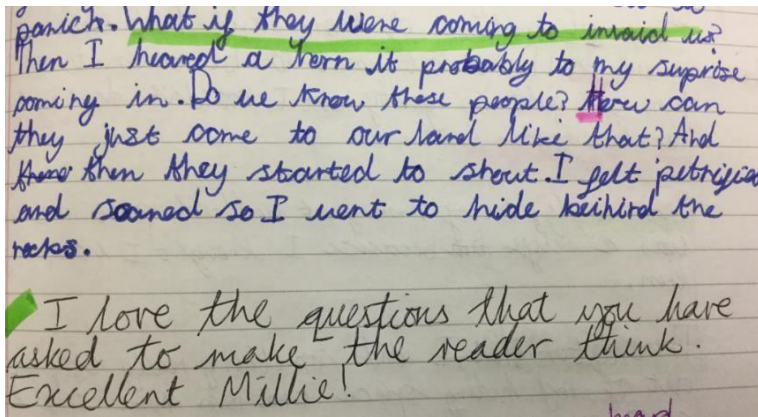 panich. What if they were coming to invaid us?
Then I heared a horn it probably to my suprise
coming in. Do we know these people? How can
they just come to our land like that? And
then they started to shout. I felt petrifia
and scaned so I went to hide beihind the
rocks.
I love the questions that you have
asked to make the reader think.
Excellent Millie!